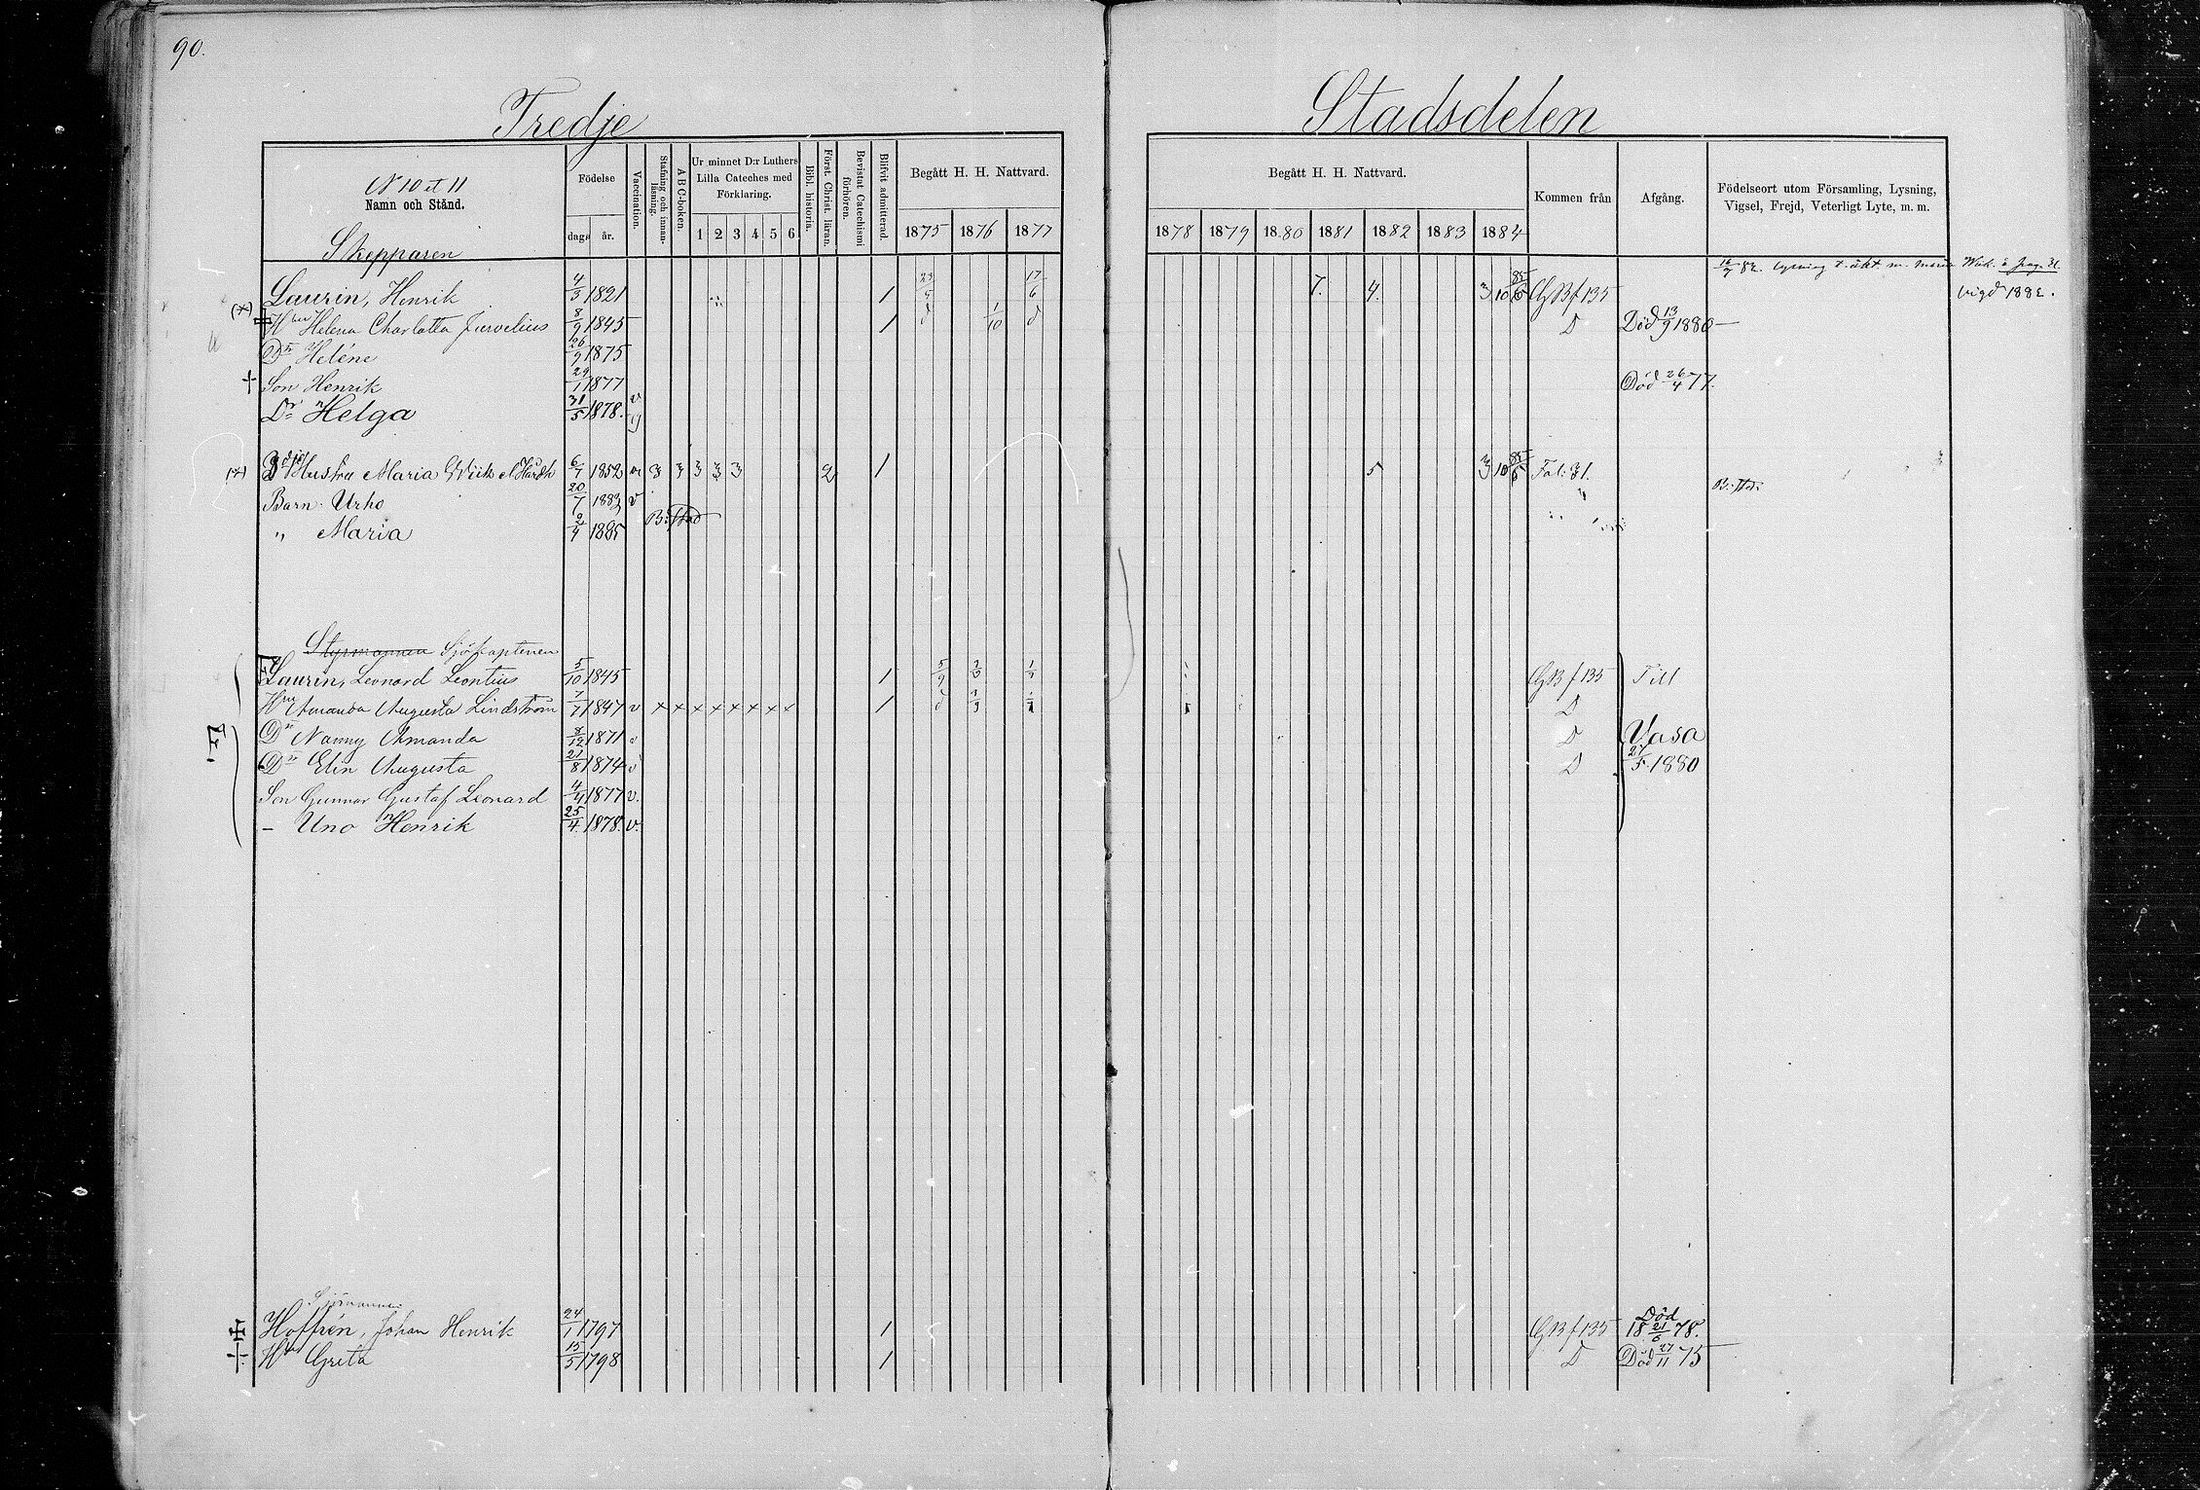 90.
Tredje Stadsdelen
N 10 et 11
Namn och Stånd.
Födelse
dag år.
Vaccination.
Stafning och innanläsning.
A B C-boken.
Ur minnet D:r Luthers Lilla Cateches med Förklaring.
1 2 3 4 5 6
Bibl. historia.
Först. Christ. läran.
Bevistat Catechismi förhören.
Blifvit admitterad.
Begått H. H. Nattvard.
1875 1876 1877
Begått H. H. Nattvard.
1878 1879 1880 1881 1882 1883 1884
Kommen från
Afgång.
Födelseort utom Församling, Lysning, Vigsel, Frejd, Veterligt Lyte, m. m.
Skepparen
Laurin, Henrik 4/3 1821 1 17/6 7. 4. 3 10 85/6 GB f 135 82. lysning t. äkt. m. Maria Wiik å pag. 31.
vigd 1882.
Hru Helena Charlotta Jurvelius 8/9 1845 1 1/10 D Död 13/9 1880
Dr Heléne 26/9 1875
Son Henrik 29/1 1877 Död 26/4 77.
Dr Helga 31/5 1878. v
Hustru Maria Wiik 6/7 1852 3 3 3 3 3 2 1 5 3 10 85/6 Fol: 31.
Barn Urho 20/7 1883 v
" Maria 1885
Styrmannen Sjökaptenen
Laurin, Leonard Leontius 5/10 1845 1 5/9 GB f 135 Till
Hru Amanda Augusta Lindström 7/7 1847 v × × × × × × × × 1 D
Dr Nanny Amanda 8/12 1871 v D Vasa
Dr Elin Augusta 21/8 1874 v D 27/5 1880
Son Gunnar Gustaf Leonard 4/4 1877 v.
– Uno Henrik 25/4 1878. v.
Sjömannen
Hoffrén, Johan Henrik 24/1 1797 1 GB f 135 Död 18 21/6 78.
Hu Greta 15/5 1798 1 D Död 27/11 75